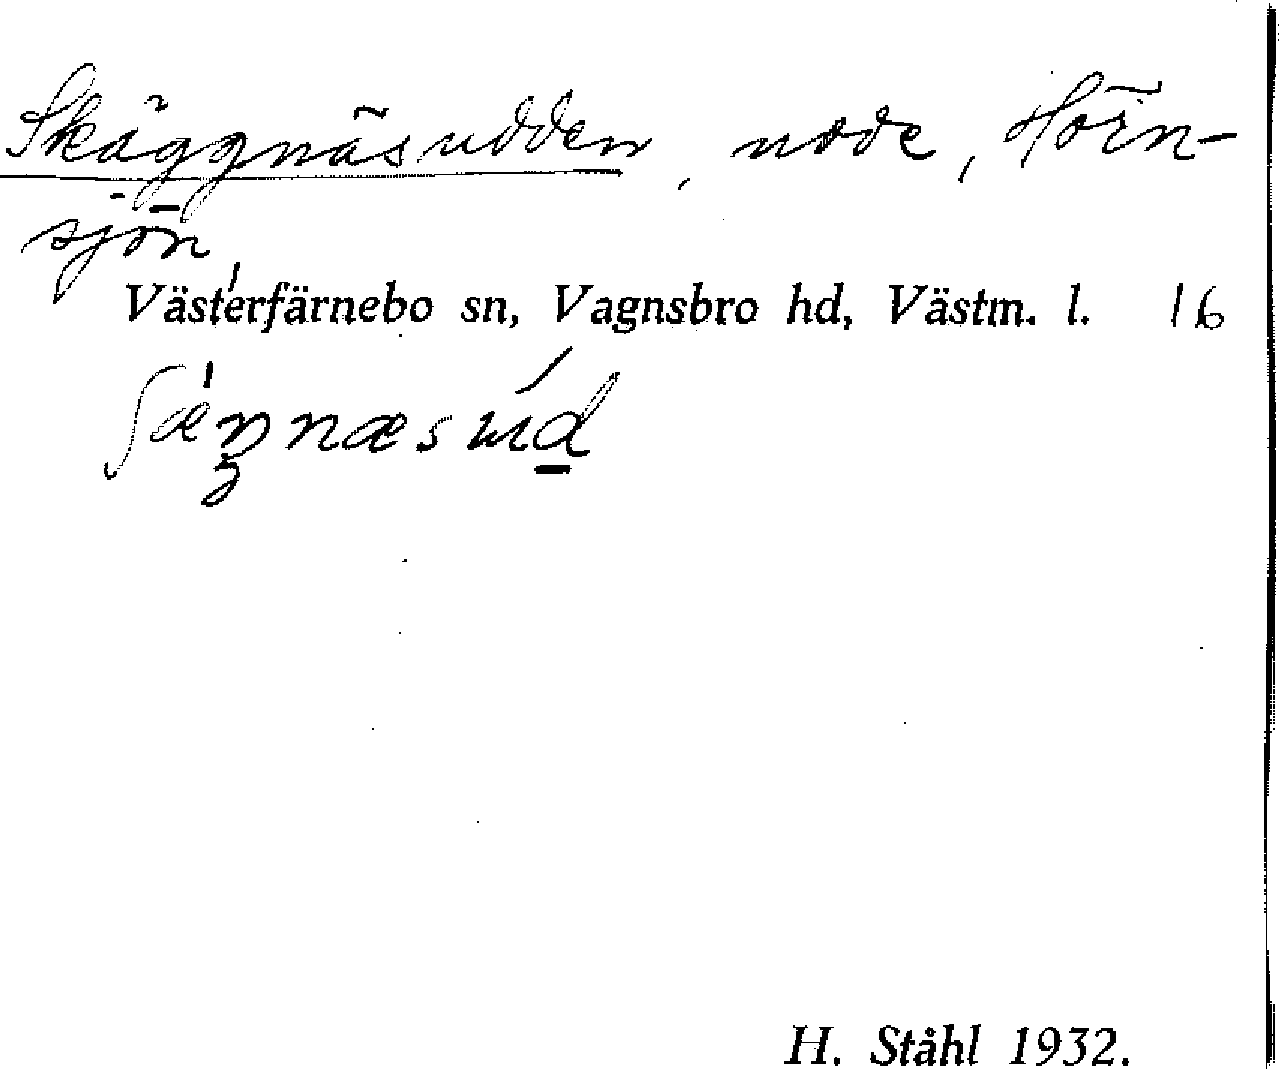 Skäggnäsudden, udde, Hörn-
sjön
Västerfärnebo sn, Vagnsbro hd, Västm. l. 16
H. Ståhl 1932.